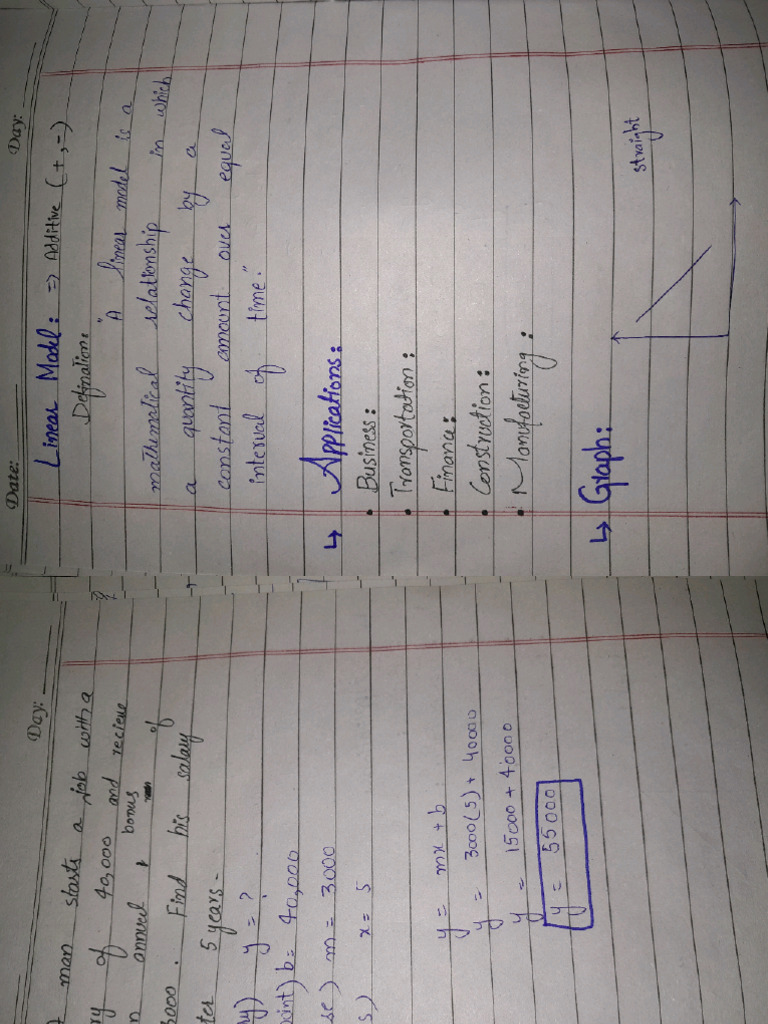 Date:
Day:
Linear Model: => Additive (+, -)
Defination:
"A linear model is a
mathematical relationship in which
a quantity change by a
constant amount over equal
interval of time."
↳ Applications:
• Business:
• Transportation:
• Finance:
• Construction:
• Manufacturing:
↳ Graph:
straight
Day:
man starts a job with a
ry of 40,000 and recieve
n annual bonus of
3000. Find his salary
ter 5 years-
ry) y = ?
oint) b = 40,000
se) m = 3000
s) x = 5
y = mx + b
y = 3000(5) + 40000
y = 15000 + 40000
y = 55000